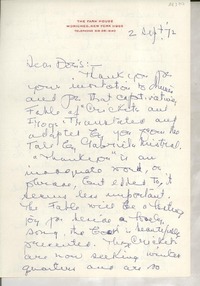 THE PARK HOUSE
2 Sept '72
Dear Doris: —
Thank you for
your invitation to dinner
and for that captivating
Fable of Crickets and
Frogs Translated and
adapted by you from the
Tale by Gabriela Mistral.
"Thank you" is an
inadequate word, or
phrase, but edged to, it
seems less important.
The Fable will be a thing of
joy for
song. The book is beautifully
presented. The Crickets
are now seeking winter
quarters and are so